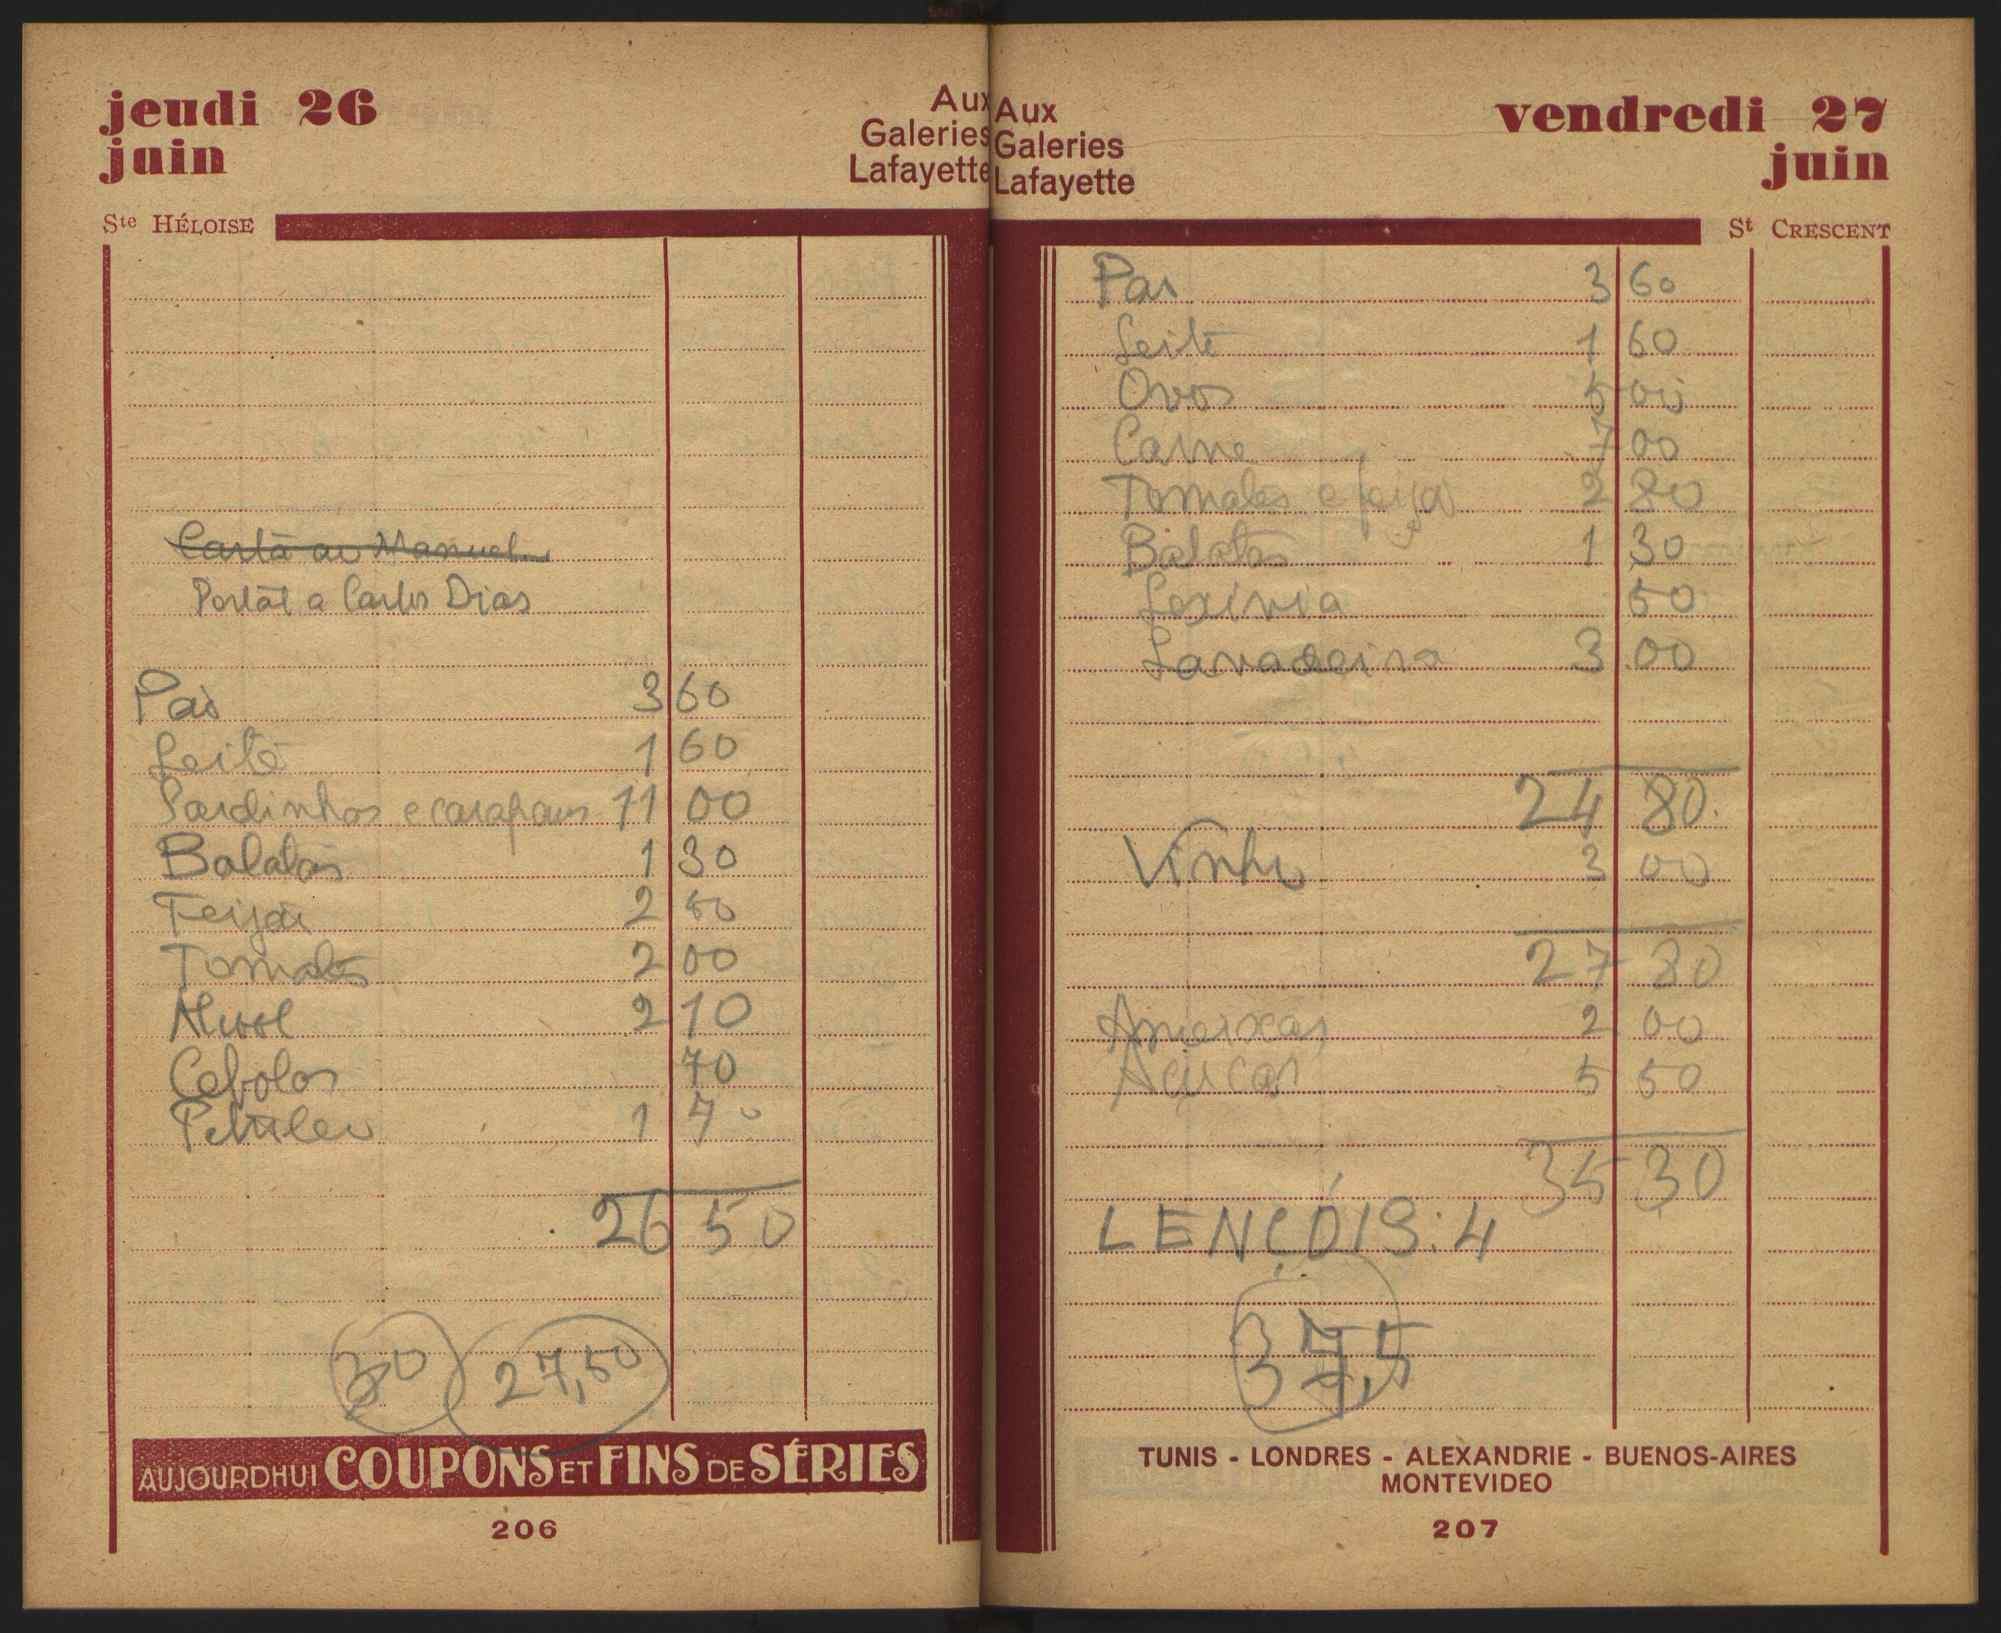 jeudi 26
juin
Aux
Galeries
Lafayette
Ste HÉLOISE
Carta ao Manuel
Postal a Carlos Dias
Pão 3 60
Leite 1 60
Sardinhas e carapaus 11 00
Batatas 1 30
Feijão 2 50
Tomates 2 00
Alcool 2 10
Cebolas 70
Petróleo 1 70
26 50
30 27,50
AUJOURDHUI COUPONS ET FINS DE SÉRIES
206
Aux
Galeries
Lafayette
vendredi 27
juin
St CRESCENT
Pão 3 60
Leite 1 60
Ovos 5 00
Carne 7 00
Tomates e feijão 2 80
Batatas 1 30
Lexivia 50
Lavadeira 3 00
24 80
Vinho 3 00
27 80
Ameixas 2 00
Açucar 5 50
35 30
LENÇÓIS: 4
37,5
TUNIS - LONDRES - ALEXANDRIE - BUENOS-AIRES
MONTEVIDEO
207